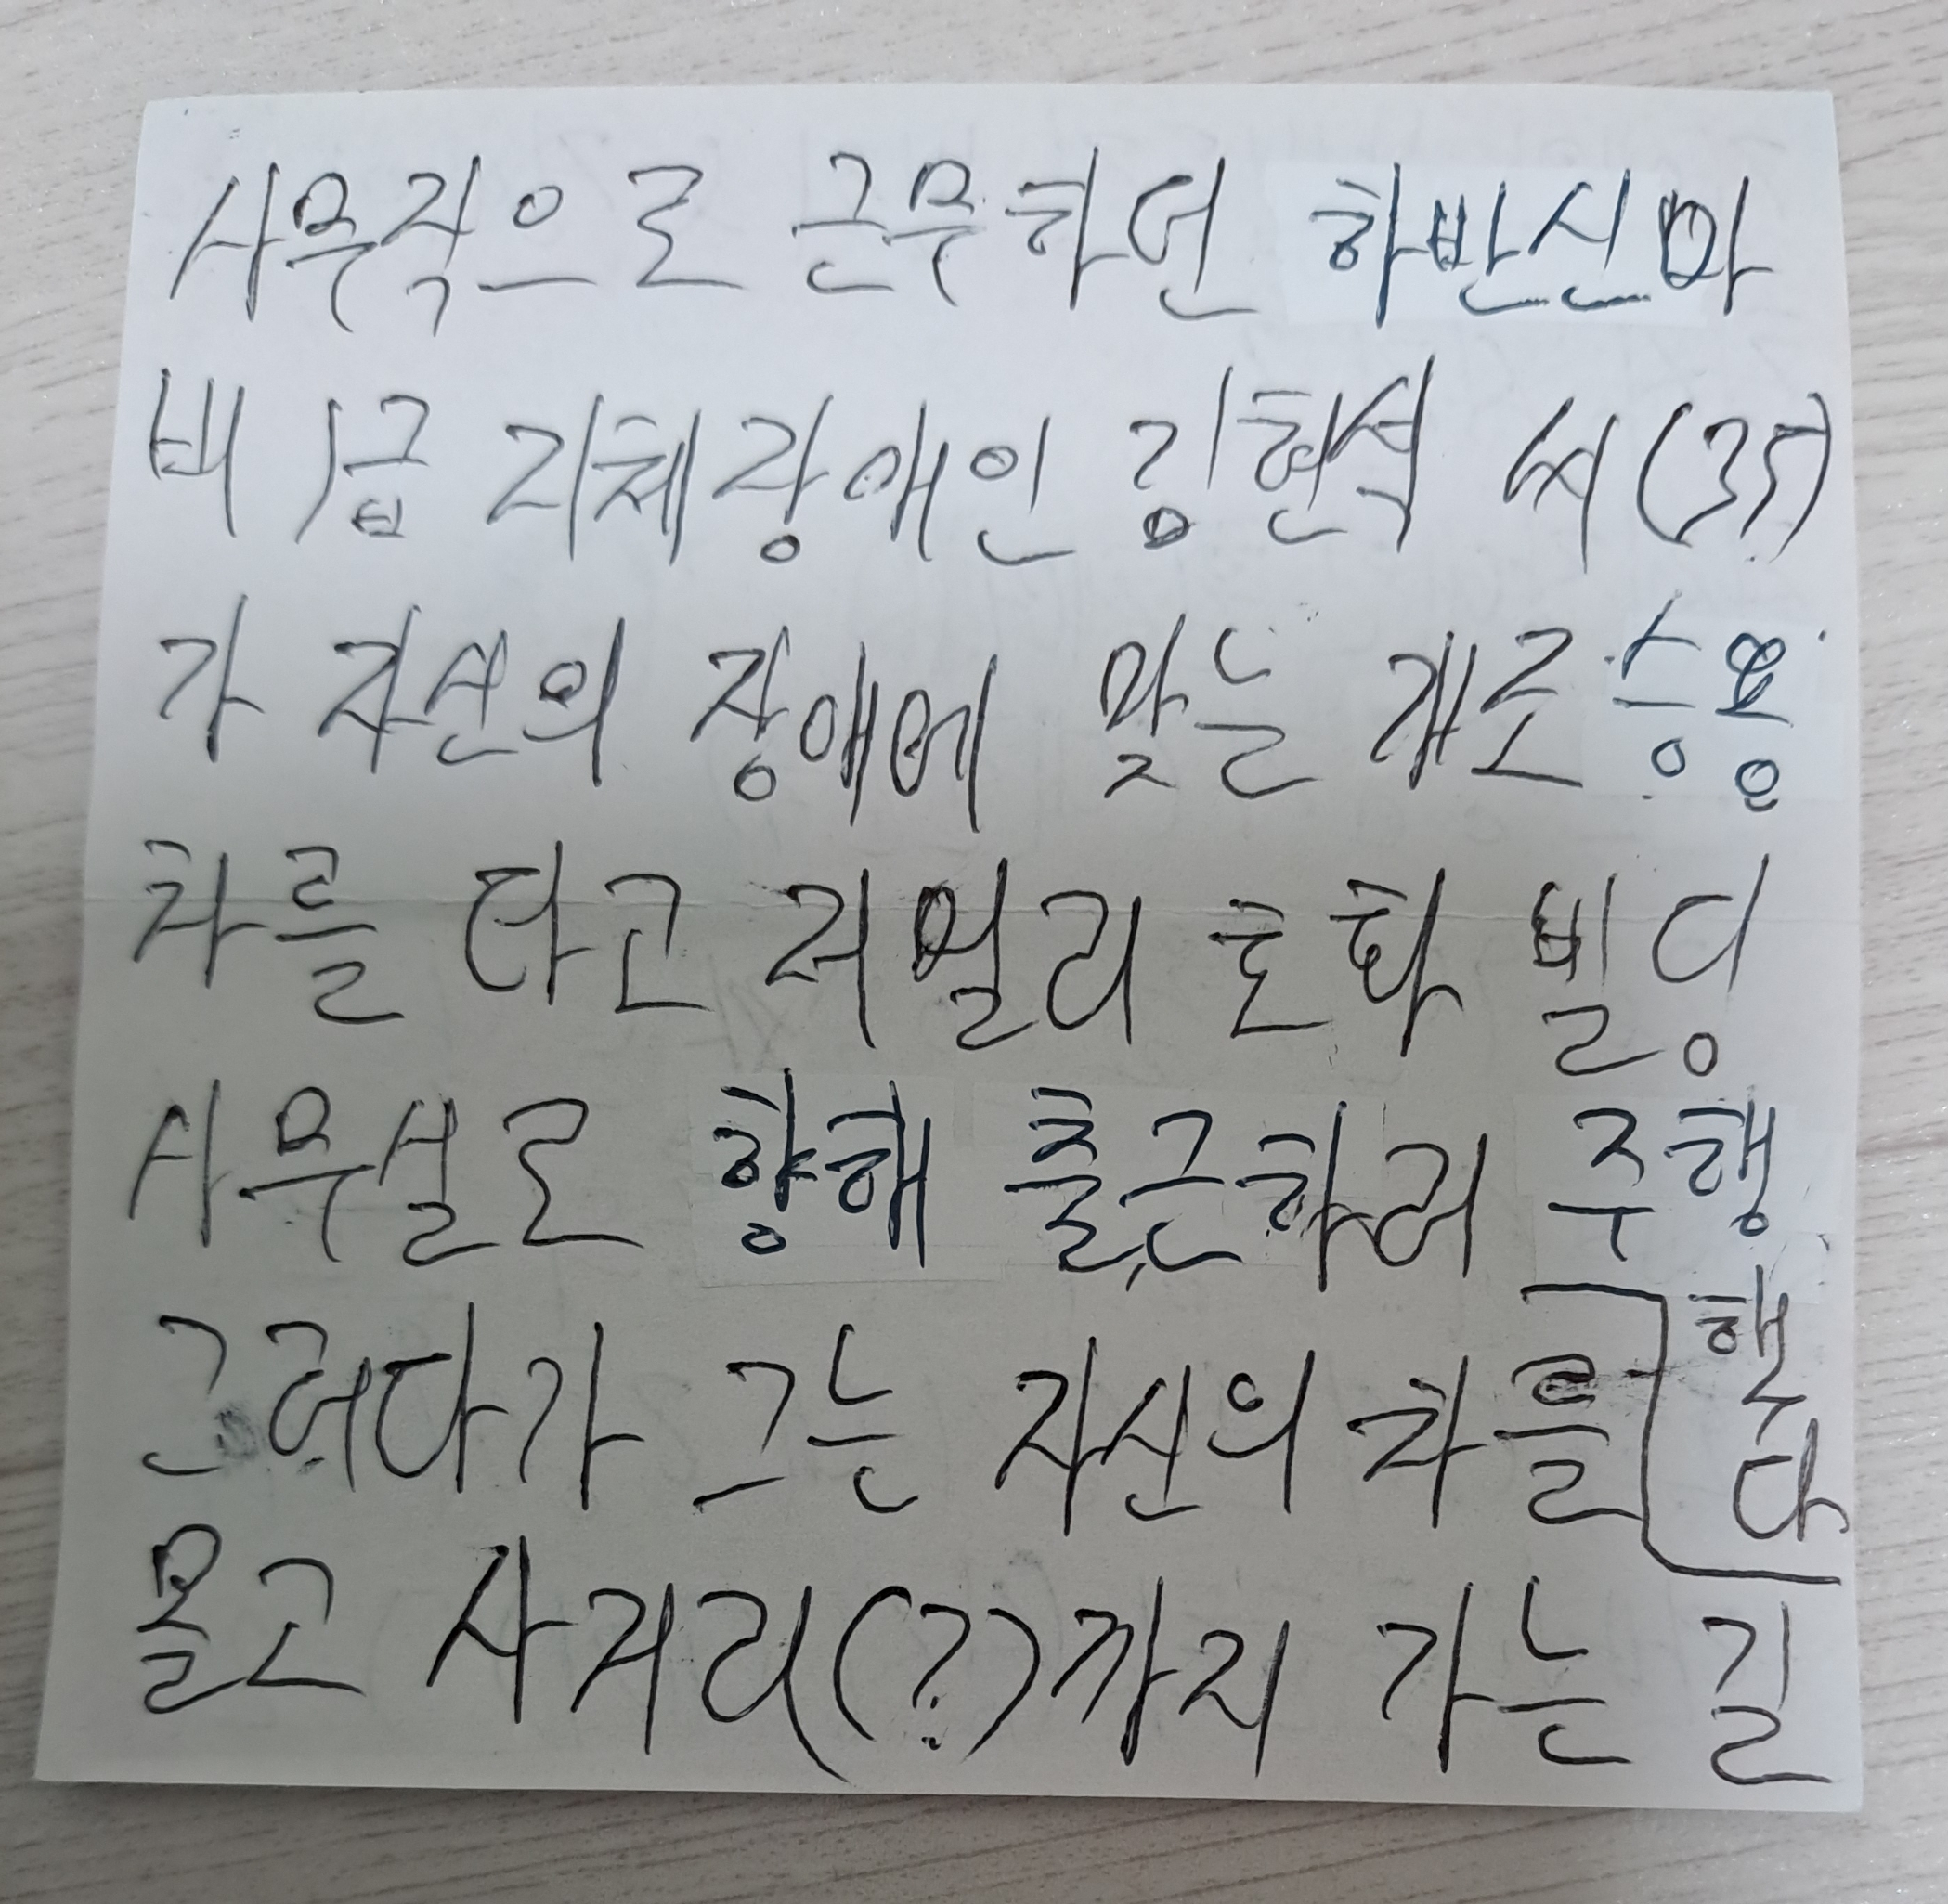 사무직으로 근무하던 하반신마
비 1급 지체장애인 김현석 씨(35)
가 자신의 장애에 맞는 개조승용
차를 타고 저멀리 도화 빌딩
사무실로 향해 출근하러 주행
했다
그러다가 그는 자신의 차를
몰고 사거리(?)까지 가는 길